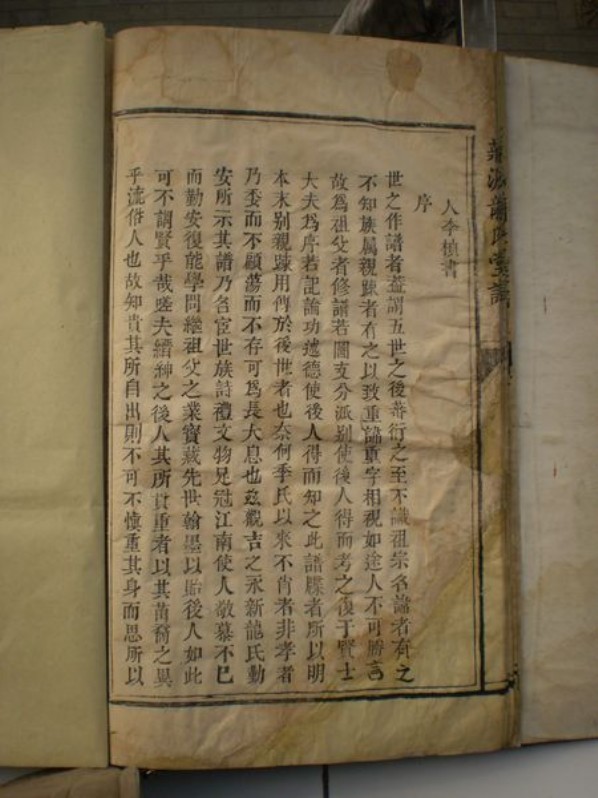 人李楨書
序
世之作譜者蓋謂五世之後蕃衍之至不識祖宗名諱者有之
不知族属親踈者有之以致重諱重字相視如途人不可勝言
故為祖父者修譜若圖支分派别使後人得而考之復于賢士
大夫為序若記論功述德使後人得而知之此譜牒者所以明
本末别親踈用傳於後世者也奈何季氏以來不肖者非孝者
乃委而不顧蕩而不存可為長大息也玆觀吉之永新龍氏勳
安所示其譜乃名宦世族詩禮文物兄冠江南使人敬慕不已
而勤安復能學問繼祖父之業寳藏先世翰墨以貽後人如此
可不謂賢乎哉嗟夫縉紳之後人其所貴重者以其苗裔之異
乎流俗人也故知貴其所自出則不可不懷重其身而思所以